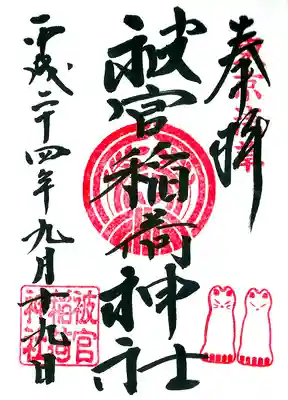 奉拝
被官稲荷神社
平成二十四年九月十九日
被官
稲荷
神社